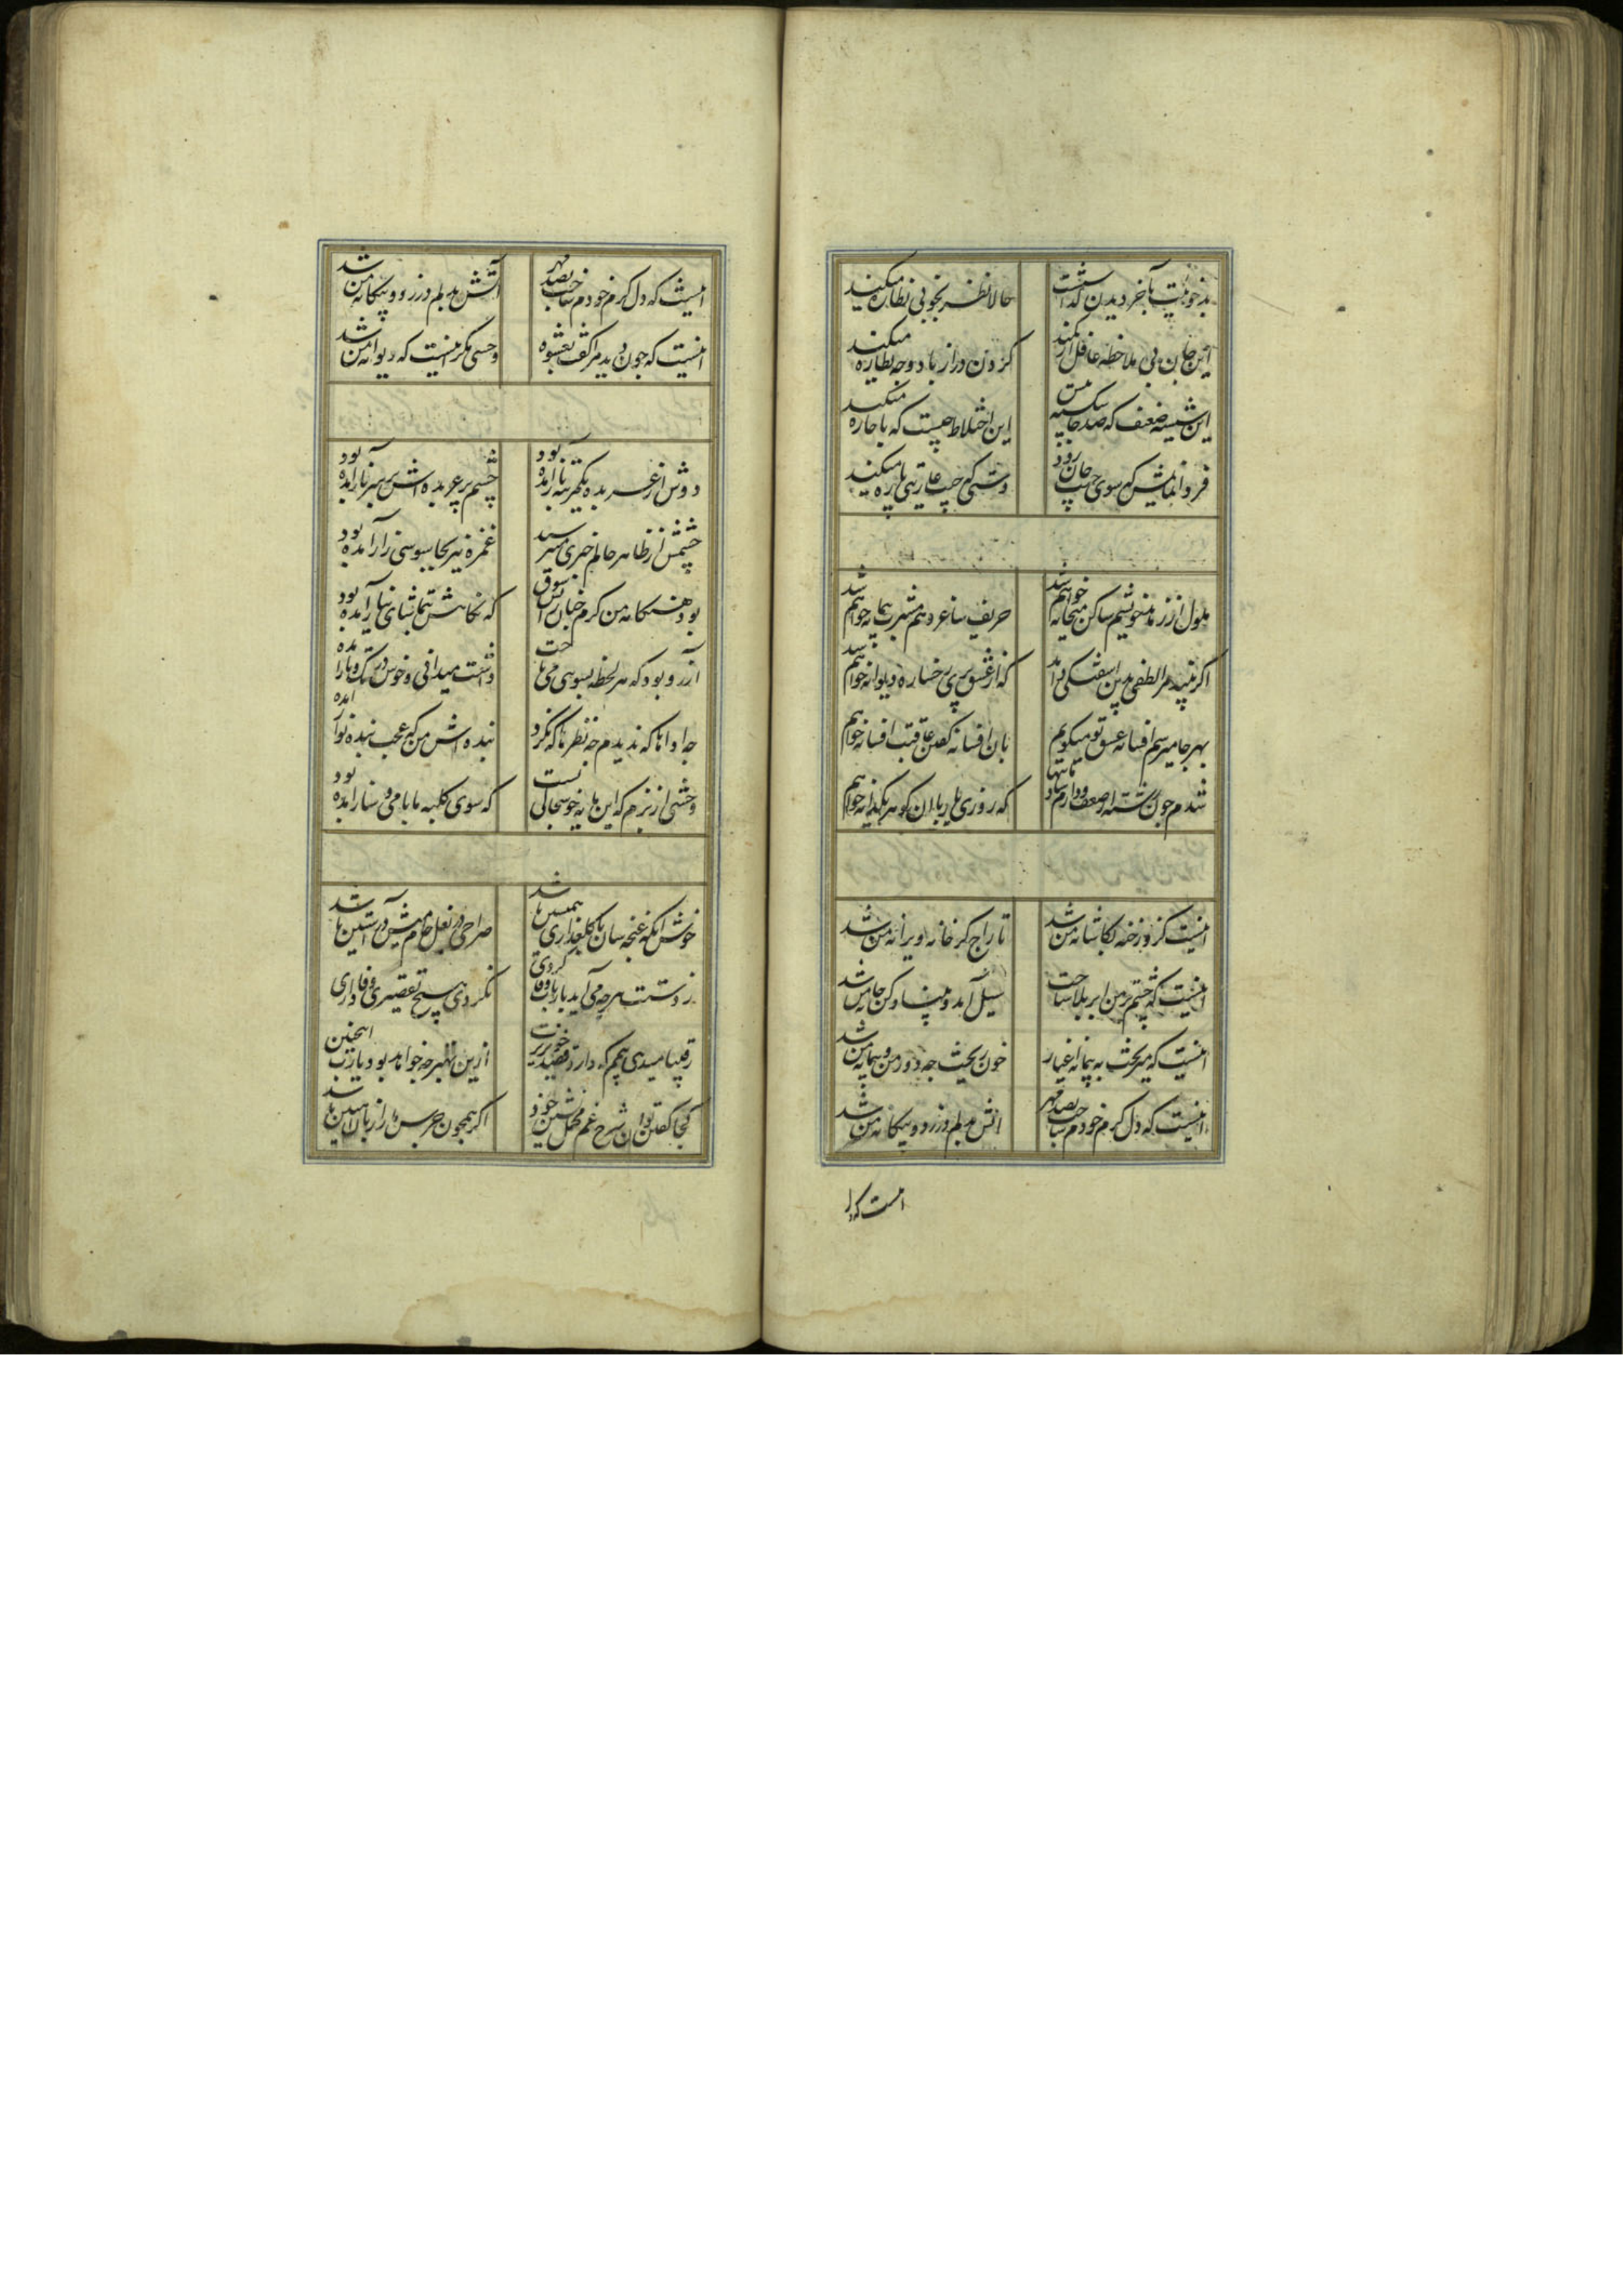 بد خوییت بآخر دیدن گذاشت حالا نظر بخوبی نظاره میکند
این جان بی ملاحظه غافل از کمند گردن دراز باد و چه نظاره میکند
این شیشه ضعیف که صد جا شکسته این اختلاط چیست که با خاره میکند
فردا نمایمش که سوی جیب جان رود دستی که جیب عاریتی پاره میکند
ملول از زهد خویشم ساکن میخانه خواهم شد حریف ساغر و هم مشرب پیمانه خواهم شد
اگر بیند مرا طفلی بدین آشفتگی داند که از عشق پری رخساره دیوانه خواهم شد
بهر جا میرسم افسانه عشق تو میگویم باین افسانه گفتن عاقبت افسانه خواهم شد
شدم چون رشته از ضعف و دارم شادمانیها که روزی یار با آن گوهر یکدانه خواهم
اینست کزو رخنه بکاشانه من شد تاراج گر خانه ویرانه من شد
اینست که چشم تر من ابر بلا ساخت سیل آمد و بنیاد کن خانه من شد
اینست که میریخت به پیمانه اغیار خون ریخت چو دور من و پیمانه من شد
اینست که دل گرم خودم ساخت بصد مهر آتش بدلم در زد و بیگانه من شد
اینست که دل
اینست که دل گرم خودم ساخت بصد مهر آتش بدلم در زد و بیگانه من شد
اینست که چون دید مرا گفت بعشوه وحشی مگر اینست که دیوانه من شد
دوش از عربده یک مرتبه باز آمده بود چشم پر عربده اش بر سر ناز آمده بود
چشمش از ظاهر حالم خبری میپرسید غمزه نیز بجاسوسی راز آمده بود
بود هنگامه من گرم چنان ز آتش شوق که نگاهش بتماشای نیاز آمده بود
آرزو بود که هر لحظه بسوی می تاخت داشت میدانی و خوش در تک و تاز آمده
چه اداها که ندیدم چه نظرها که نکرد بنده اش من که عجب بنده نواز آمده
وحشی از بزم که این مایه خوشحالی یافت که سوی کلبه ما با می و ساز آمده بود
خوش آنکه غنچه سان با گلعذاری همنشین باشد صراحی در بغل جام میش در آستین باشد
ز دستت هرچه می آید بارباب وفا کردی نکردی هیچ تقصیری وفاداری
رقیبا میدهی بیمم که دارد قصد خونریزت ازین بهتر چه خواهد بود یارب اینچنین
کجا گفتن توان شرح غم محمل نشین خود اگر همچون جرس ما را زبان آهنین باشد